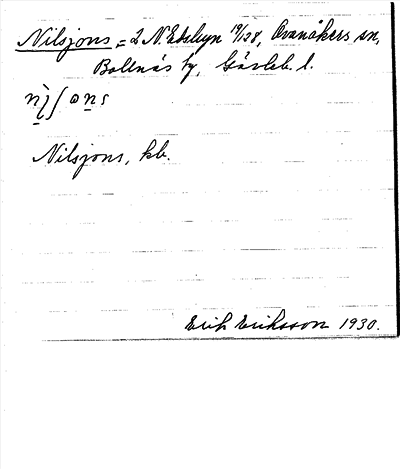 Nilsjons = 2 N. Edsbyn 19/28, Ovanåkers sn,
Bollnäs tg, Gävleb. l.
Nilsjons, kb.
Erik Eriksson 1930.